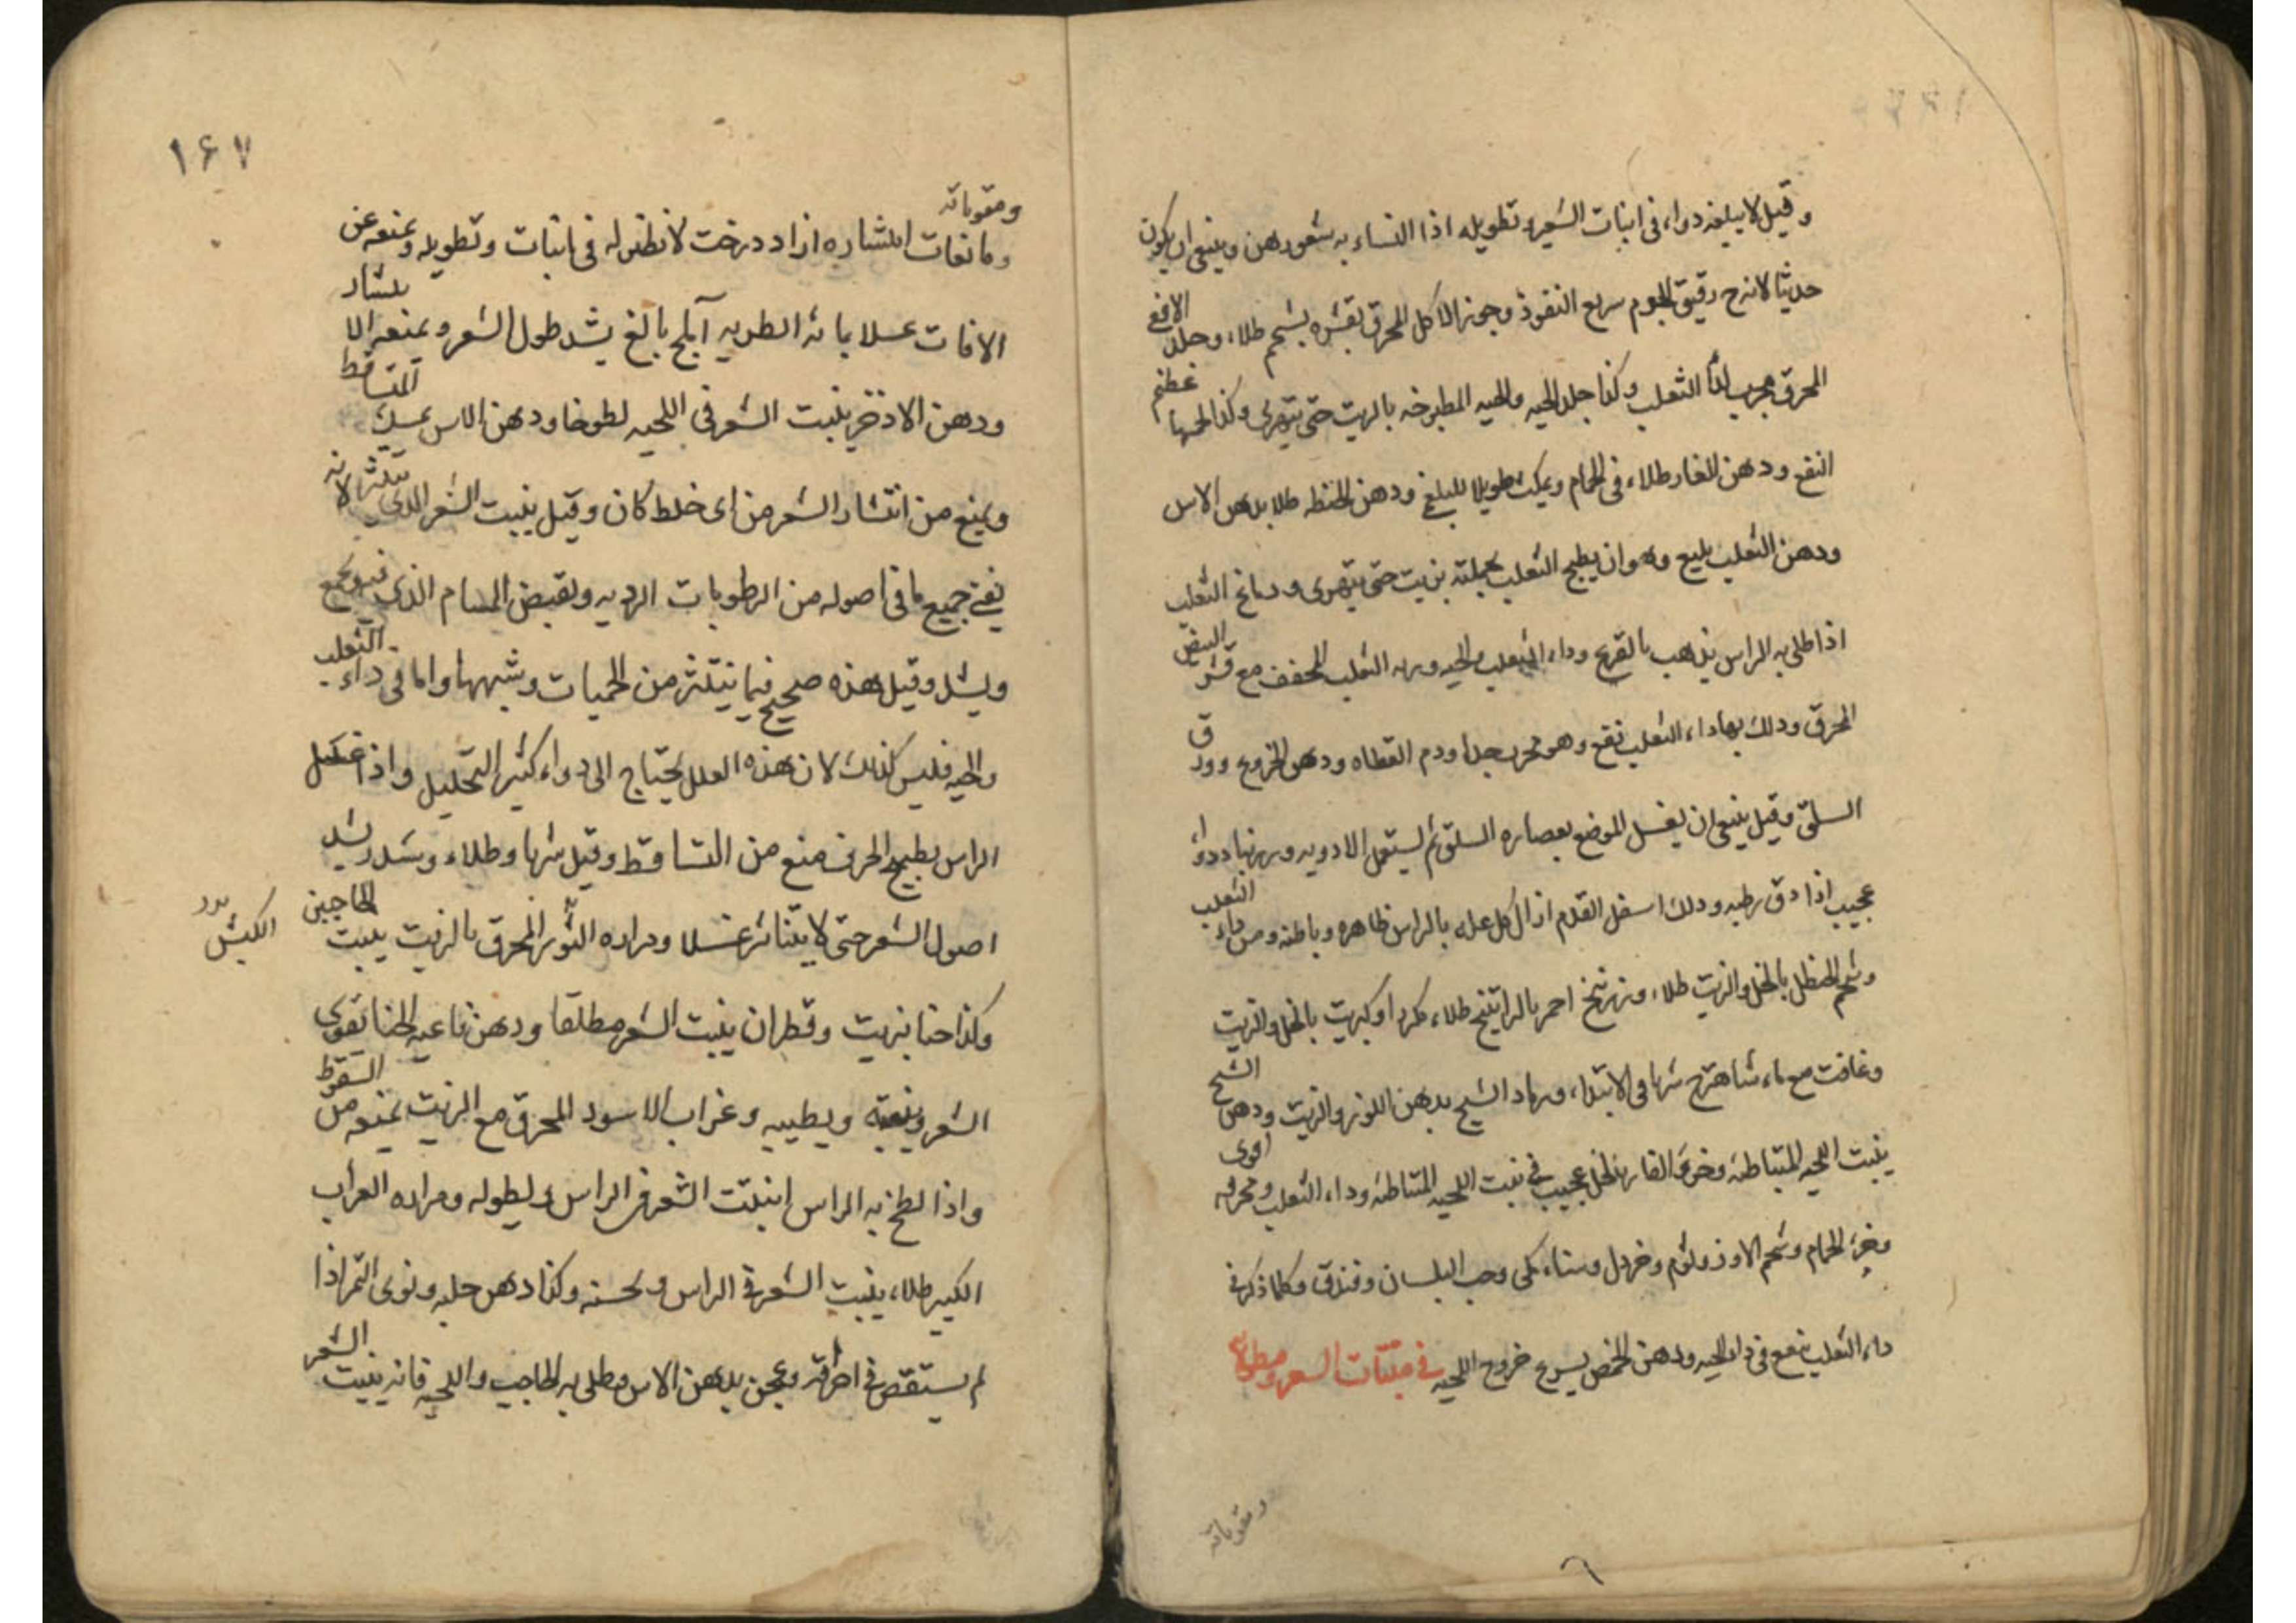 وقيل لا يبلغه دواء فى انبات الشعر وتطويله اذا النساء به شعورهن وينبغى ان يكون
حديثا لانه رقيق الجرم سريع النفوذ وجوز الاكل المحرق بقشره بشحم طلاء وجلد الافعى
المحرق مجرب لداء الثعلب وكذا جلد الحيه والحيه المطبوخه بالزيت حتى يتهرى وكذا لحمها عظيم
النفع ودهن الغار طلاء فى الحمام ويمكث طويلا للبلغمى ودهن الحنطه طلا بدهن الاس
ودهن الثعلب بليغ وهو ان يطبخ الثعلب بجملته بزيت حتى يتهرى ودماغ الثعلب
اذا طلى به الراس يذهب بالقرع وداء الثعلب والحيه وريه الثعلب المجفف مع قشر البيض
المحرق ودلك بها داء الثعلب نفع وهو مجرب جدا ودم القطاه ودهن الخروع وورق
السلق وقيل ينبغى ان يغسل الموضع بعصاره السلق ثم ليستعمل الادويه و دواء
عجيب اذا دق رطبه ودلك اسفل القدم ازال كل عله بالراس ظاهره وباطنه ومن داء الثعلب
وشحم الحنظل بالخل والزيت طلاء وزرنيخ احمر بالراتينج طلاء مكررا وكبريت بالخل والزيت
وغافت مع ماء شاهترج شربا فى الابتداء ورماد الشيح بدهن اللوز والزيت ودهن الشيح
ينبت اللحيه المتباطئه وخرء الفار بالخل عجيب فى نبت اللحيه المتباطئه وداء الثعلب ومحرقه اقوى
وخرء الحمام وشحم الاوز وثوم وخردل وسناء مكى وحب البلسان وفندق وكلما ذكر فى
داء الثعلب ينفع فى داء الحيه ودهن الحمص يسرع خروج اللحيه فى منبتات الشعر ومطولاته
ومقوياته
١٦٧
ومقوياته
ومانعات انتشاره ازاد درخت لا نظير له فى انبات وتطويله ويمنعه عن
الافات غسلا بمائه الطريه آملج بالغ يشد طول الشعر ويمنعه الانتشار
ودهن الاذخر ينبت الشعر فى اللحيه لطوخا ودهن الاس يمسك المتساقط
ويمنع من انتشار الشعر من اى خلط كان وقيل ينبت الشعر الذى يتنثر لانه
ينقى جميع ما فى اصوله من الرطوبات الرديه ويقبض المسام الذى فيه ويجمع
ويشد وقيل هذه صحيح فيما يتنثر من الحميات وشبهها واما فى داء الثعلب
والحيه فليس كذلك لان هذه العلل يحتاج الى دواء كثير التحليل واذا غسل
الراس بطبيخ الحرف منع من التساقط وقيل شربا وطلاء و يشد
اصول الشعر حتى لا يتناثر غسلا ومراره الثور المحرق بالزيت ينبت الحاجبين
الكبش
وكذا حنا بزيت وقطران ينبت الشعر مطلقا ودهن فاغيه الحنا يقوى
الشعر وينبته ويطيبه وغراب الاسود المحرق مع الزيت يمنعه من السقوط
واذا لطخ به الراس انبتت الشعر فى الراس ويطوله ومراره الغراب
الكبير طلاء ينبت الشعر فى الراس ويحسنه وكذا دهن حلبه ونوى التمر اذا
لم يستقص فى احراقه وعجن بدهن الاس وطلى به الحاجب واللحيه فانه ينبت الشعر